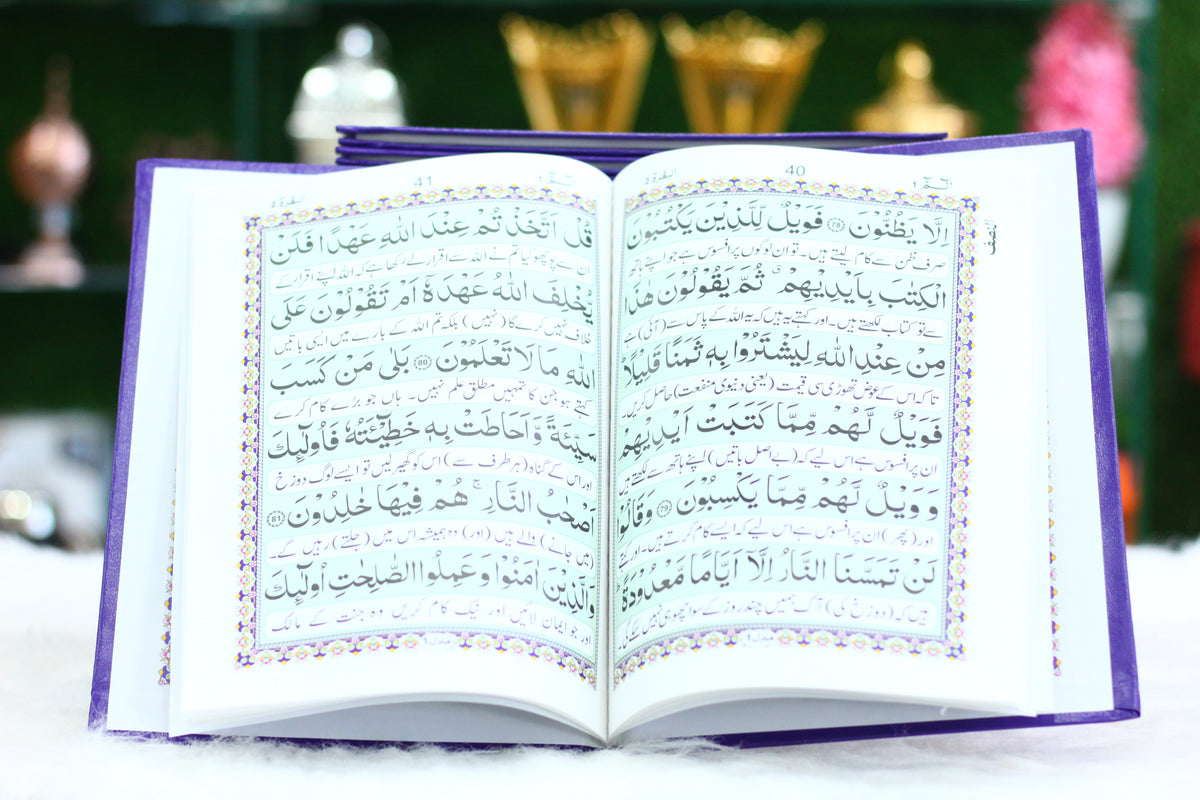 40
البقرة ٢
الٓمّٓ ١
النصف
اِلَّا يَظُنُّوْنَ ﴿78﴾ فَوَيْلٌ لِّلَّذِيْنَ يَكْتُبُوْنَ
صرف ظن سے کام لیتے ہیں۔ تو ان لوگوں پر افسوس ہے جو اپنے ہاتھ
الْكِتٰبَ بِاَيْدِيْهِمْ ۗ ثُمَّ يَقُوْلُوْنَ هٰذَا
سے تو کتاب لکھتے ہیں۔ اور کہتے یہ ہیں کہ یہ اللہ کے پاس سے (آئی) ہے
مِنْ عِنْدِ اللّٰهِ لِيَشْتَرُوْا بِهٖ ثَمَنًا قَلِيْلًا
تاکہ اس کے عوض تھوڑی سی قیمت (یعنی دنیوی منفعت) حاصل کریں۔
فَوَيْلٌ لَّهُمْ مِّمَّا كَتَبَتْ اَيْدِيْهِمْ
ان پر افسوس ہے اس لیے کہ (بے اصل باتیں) اپنے ہاتھ سے لکھتے ہیں
وَ وَيْلٌ لَّهُمْ مِّمَّا يَكْسِبُوْنَ ﴿79﴾ وَقَالُوْا
اور (پھر) ان پر افسوس ہے اس لیے کہ ایسے کام کرتے ہیں۔ اور کہتے
لَنْ تَمَسَّنَا النَّارُ اِلَّآ اَيَّامًا مَّعْدُوْدَةً ؕ
ہیں کہ (دوزخ کی) آگ ہمیں چند روز کے سوا چھو ہی نہیں سکے گی۔
منزل ١
41
البقرة ٢
الٓمّٓ ١
قُلْ اَتَّخَذْتُمْ عِنْدَ اللّٰهِ عَهْدًا فَلَنْ
ان سے پوچھو کیا تم نے اللہ سے اقرار لے رکھا ہے کہ اللہ اپنے اقرار کے
يُّخْلِفَ اللّٰهُ عَهْدَهٗٓ اَمْ تَقُوْلُوْنَ عَلَى
خلاف نہیں کرے گا (نہیں) بلکہ تم اللہ کے بارے میں ایسی باتیں
اللّٰهِ مَا لَا تَعْلَمُوْنَ ﴿80﴾ بَلٰى مَنْ كَسَبَ
کہتے ہو جن کا تمہیں مطلق علم نہیں۔ ہاں جو برے کام کرے
سَيِّئَةً وَّاَحَاطَتْ بِهٖ خَطِيْٓئَتُهٗ فَاُولٰٓئِكَ
اور اس کے گناہ (ہر طرف سے) اس کو گھیر لیں تو ایسے لوگ دوزخ
اَصْحٰبُ النَّارِ ۚ هُمْ فِيْهَا خٰلِدُوْنَ ﴿81﴾
(میں جانے) والے ہیں (اور) وہ ہمیشہ اس میں (جلتے) رہیں گے۔
وَالَّذِيْنَ اٰمَنُوْا وَعَمِلُوا الصّٰلِحٰتِ اُولٰٓئِكَ
اور جو ایمان لائیں اور نیک کام کریں وہ جنت کے مالک
منزل ١